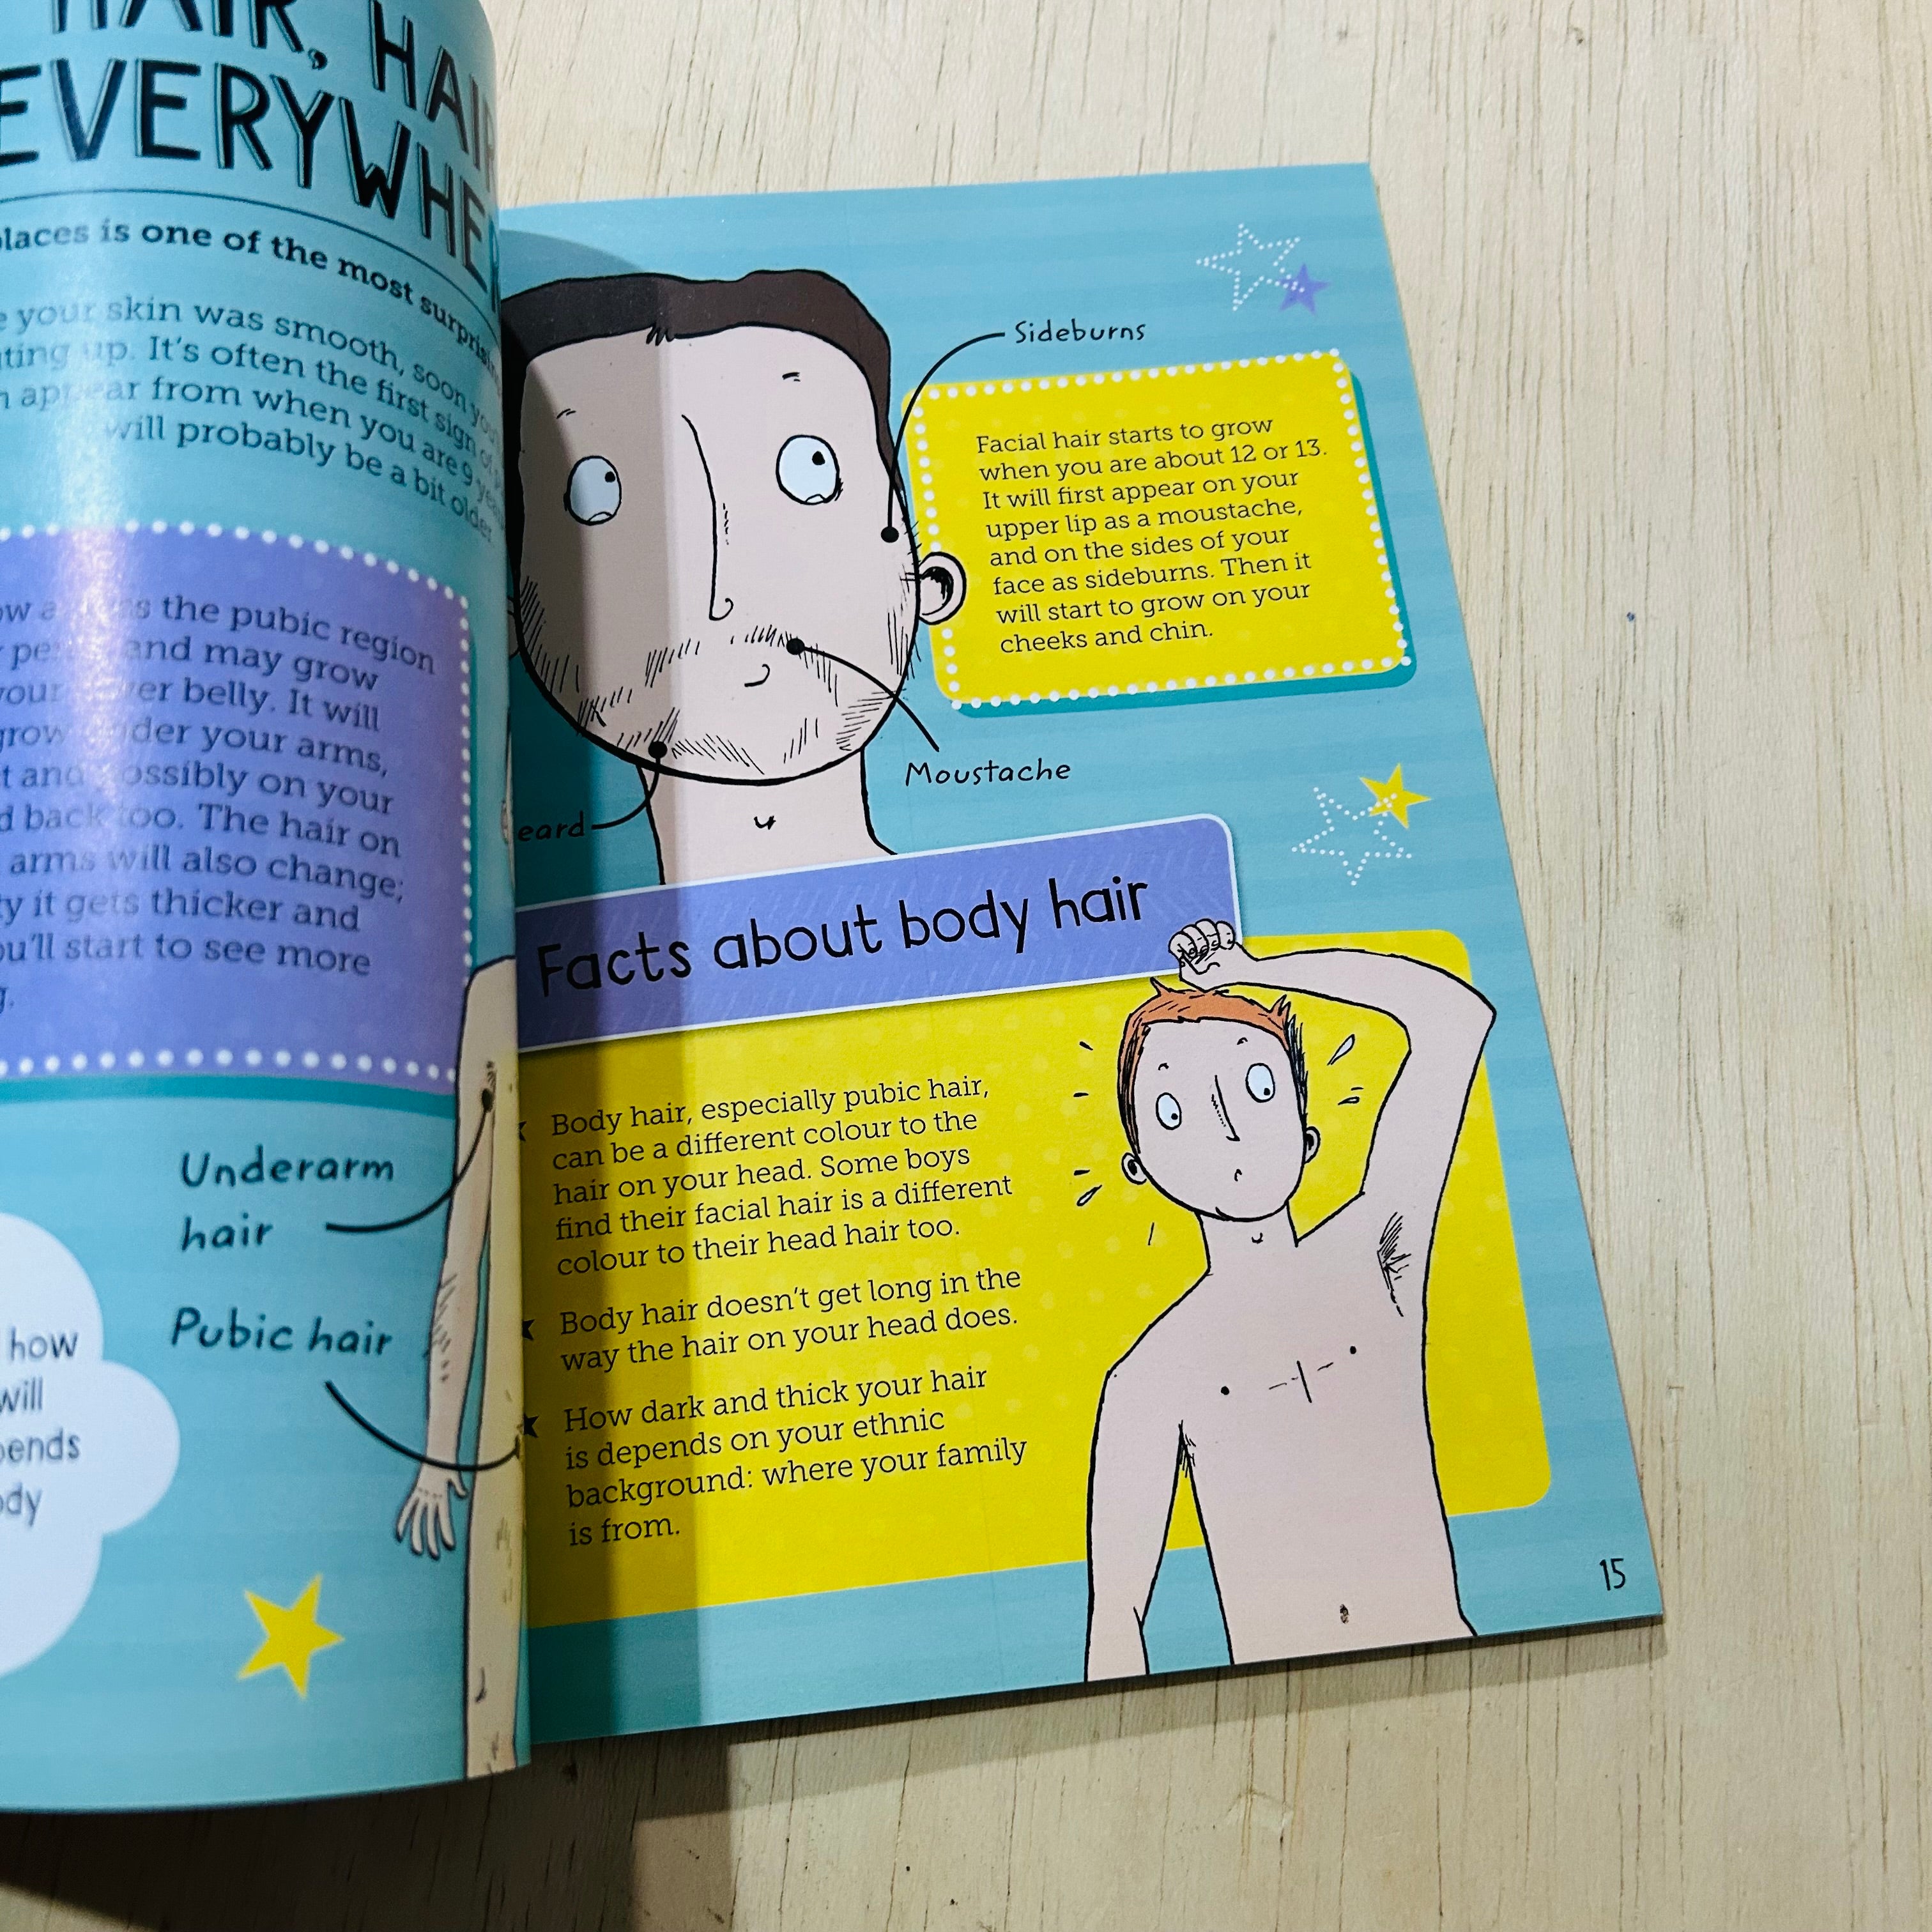 HAIR, HAIR
EVERYWHE
places is one of the most surpris
your skin was smooth, soon you
ting up. It's often the first sign of
appear from when you are 9 years
will probably be a bit older.
the pubic region
and may grow
your lower belly. It will
grow under your arms,
and possibly on your
back too. The hair on
arms will also change;
it gets thicker and
ou'll start to see more
Underarm
hair
Pubic hair
how
will
pends
ody
Sideburns
Facial hair starts to grow
when you are about 12 or 13.
It will first appear on your
upper lip as a moustache,
and on the sides of your
face as sideburns. Then it
will start to grow on your
cheeks and chin.
Moustache
eard
Facts about body hair
Body hair, especially pubic hair,
can be a different colour to the
hair on your head. Some boys
find their facial hair is a different
colour to their head hair too.
Body hair doesn't get long in the
way the hair on your head does.
How dark and thick your hair
is depends on your ethnic
background: where your family
is from.
15